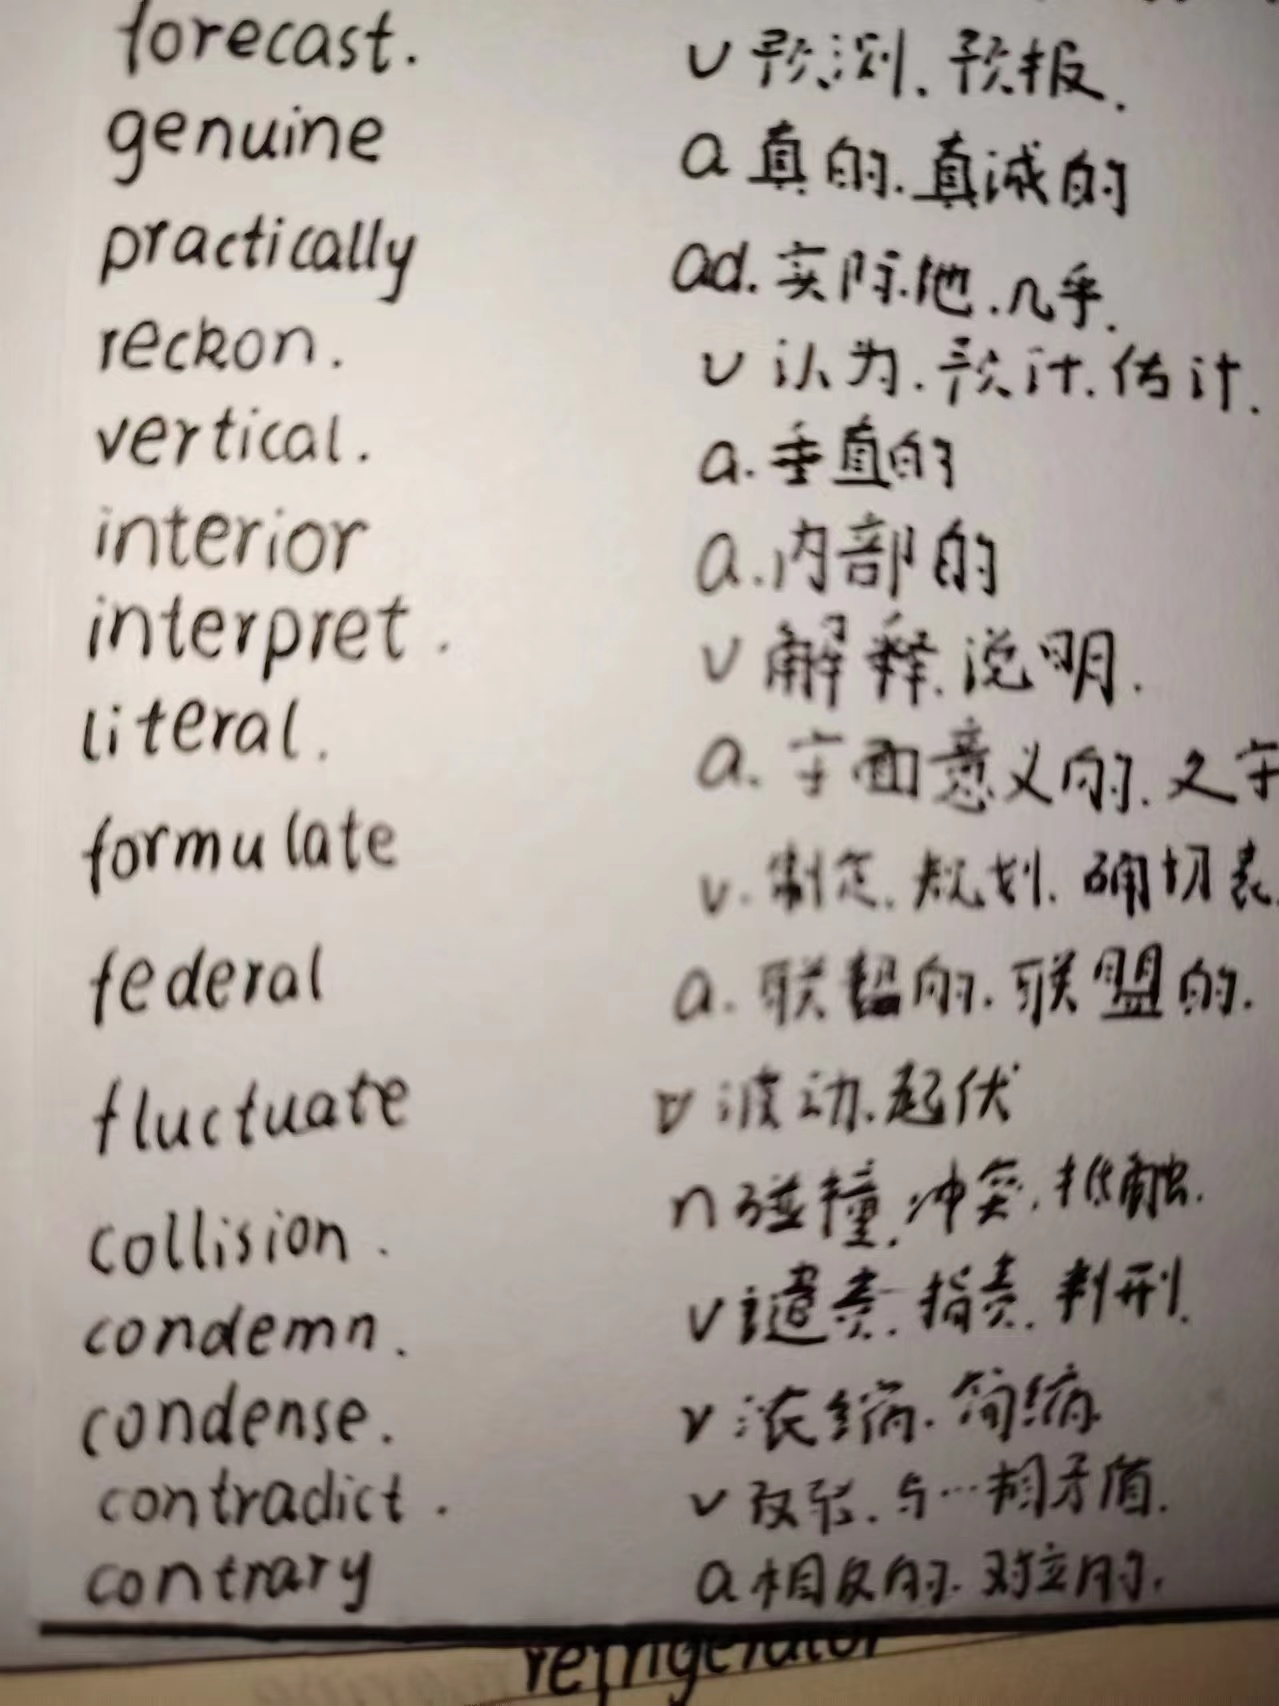 forecast. v 预测. 预报.
genuine a 真的. 真诚的
practically ad. 实际地. 几乎.
reckon. v 认为. 预计. 估计.
vertical. a. 垂直的
interior a. 内部的
interpret. v 解释. 说明.
literal. a. 字面意义的. 文字
formulate v. 制定. 规划. 确切表
federal a. 的. 联盟的.
fluctuate v 波动. 起伏
collision. n 碰撞. 冲突. 抵触.
condemn. v 谴责. 指责. 判刑.
condense. v 浓缩. 简缩
contradict. v 与…相矛盾.
contrary a 相反的. 对立的.
refrigerator